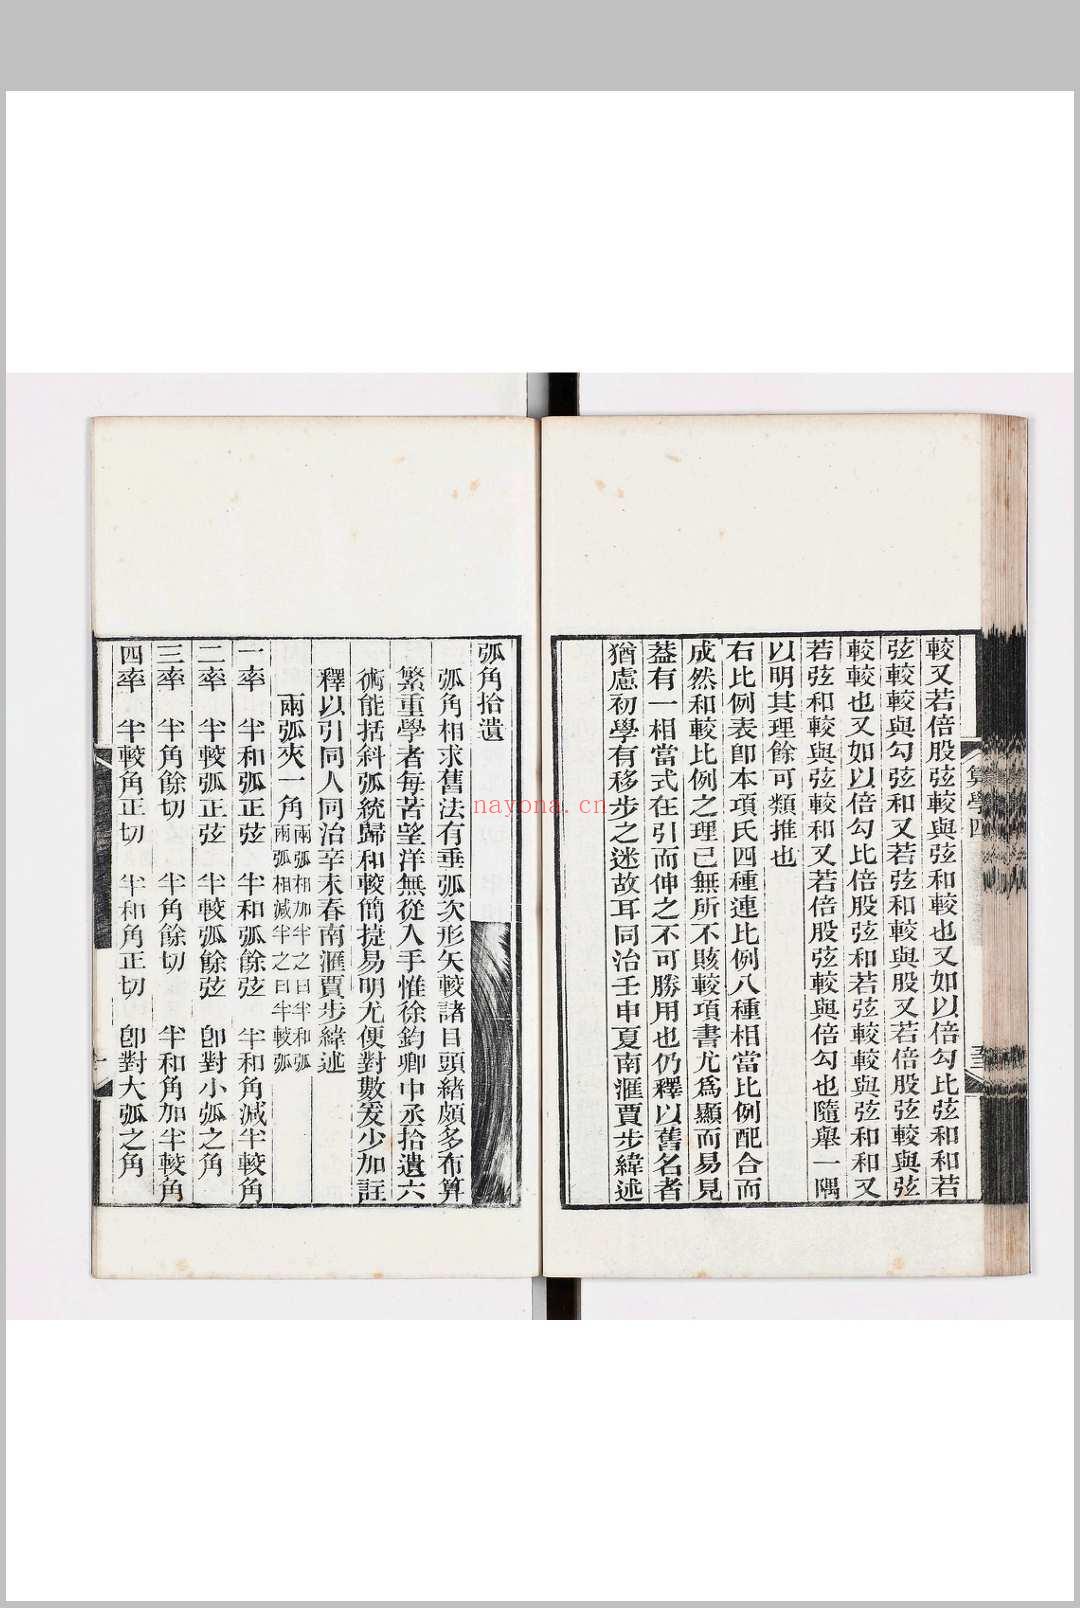 較又若倍股弦較與弦和較也又如以倍勾比弦和和若
弦較較與勾弦和又若弦和較與股又若倍股弦較與弦
較較也又如以倍勾比倍股弦和若弦較較與弦和和又
若弦和較與弦較和又若倍股弦較與倍勾也隨舉一隅
以明其理餘可類推也
右比例表卽本項氏四種連比例八種相當比例配合而
成然和較比例之理已無所不賅較項書尤爲顯而易見
葢有一相當式在引而伸之不可勝用也仍釋以舊名者
猶慮初學有移步之迷故耳同治壬申夏南滙賈步緯述
算學四
弧角拾遺
弧角相求舊法有垂弧次形矢較諸目頭緒頗多布算
繁重學者每苦望洋無從入手惟徐鈞卿中丞拾遺六
術能括斜弧統歸和較簡捷易明尤便對數爰少加註
釋以引同人同治辛未春南滙賈步緯述
兩弧夾一角兩弧相加半之曰半和弧兩弧相減半之曰半較弧
一率 半和弧正弦 半和弧餘弦 半和角減半較角
二率 半較弧正弦 半較弧餘弦 卽對小弧之角
三率 半角餘切 半角餘切 半和角加半較角
四率 半較角正切 半和角正切 卽對大弧之角
nayona.cn